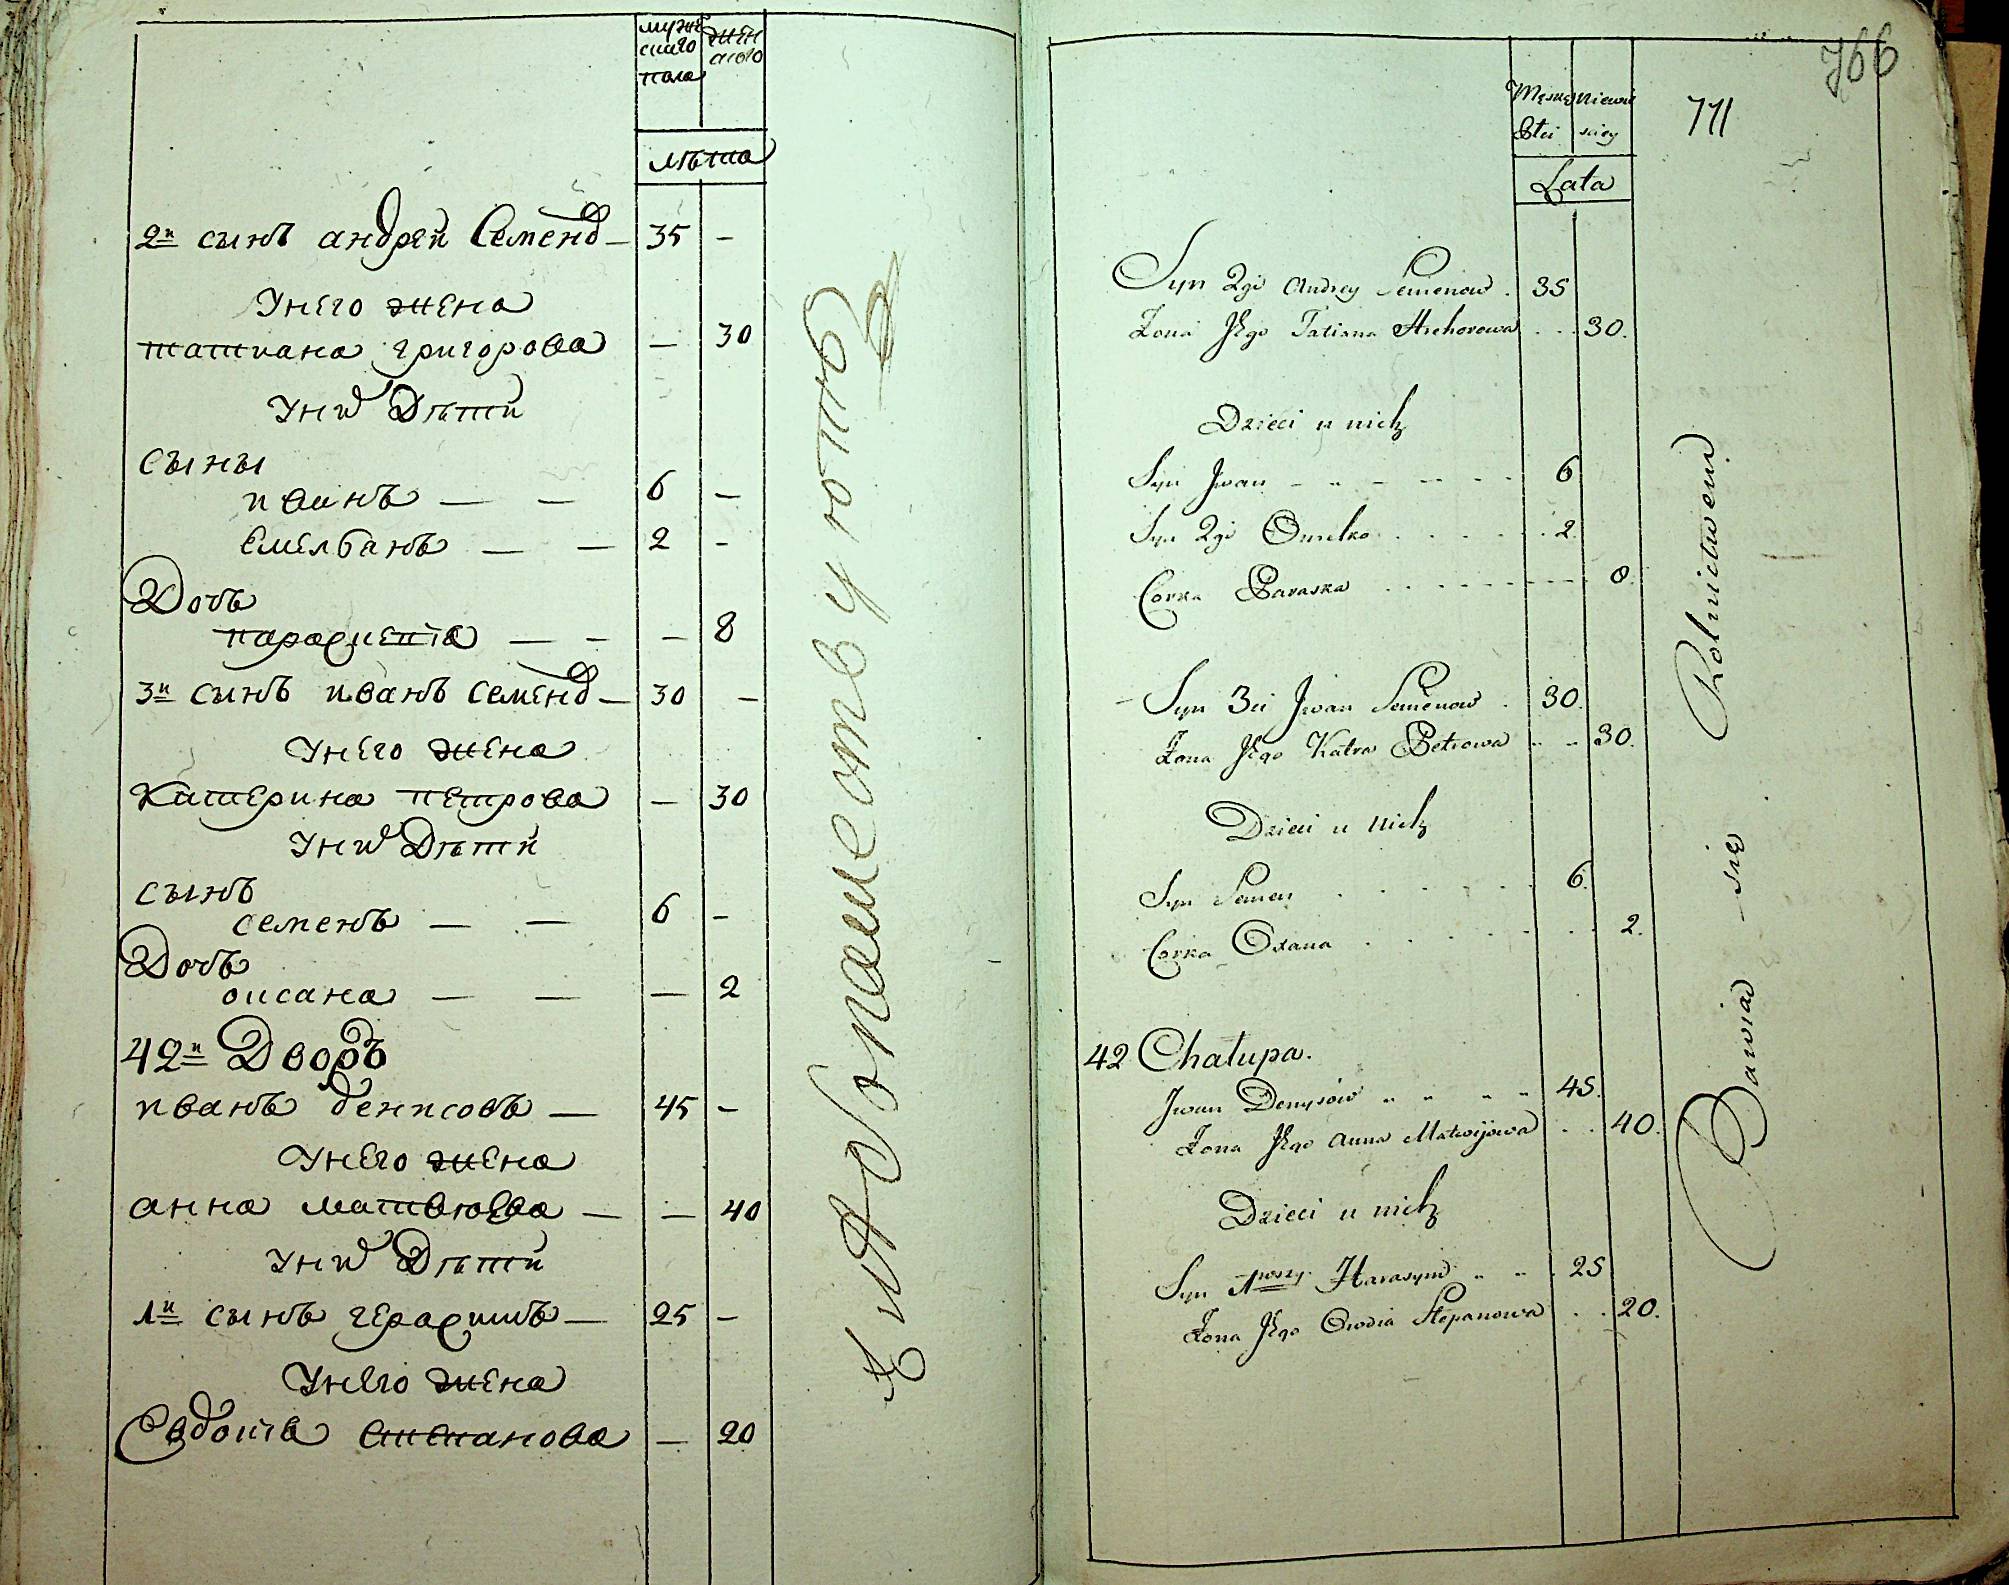 мужескаго пола
женскаго
лѣта
2й сынъ андрей Семено 35 –
У него жена
татиана григорова — 30
У них Дѣти
Сыны
иванъ — — 6 –
Емельянъ — — 2 –
Дочь
параскевiя — – – 8
3й сынъ иванъ Семено 30 –
У него жена
Катерина петрова — 30
У них Дѣти
Сынъ
семенъ — — 6 –
Дочь
оксана — — — 2
42й Дворъ
иванъ денисовъ — 45 –
У него жена
анна матвюева — — 40
У них Дѣти
1й сынъ герасимъ — 25 –
У него жена
Евдокiя степанова — 20
Хлебопашествуютъ
766
771
Męskiey
Niewieściey
Płci
Lata
Syn 2gi Andrey Semenow . 35
Żona Jego Tatiana Hrehorowa . . . 30.
Dzieci u nich
Syn Jwan 6
Syn 2gi Omelko 2.
Corka Paraska 8.
– Syn 3ci Jwan Semenow . 30.
Żona Jego Katra Petrowa 30.
Dzieci u nich
Syn Semen 6.
Corka Oxana 2.
42 Chałupa.
Jwan Denysów 45.
Żona Jego Anna Matwijowa . . 40.
Dzieci u nich
Syn 1wszy Harasym 25
Żona Jego Owdia Stepanowa . . 20.
Bawią się Rolnictwem